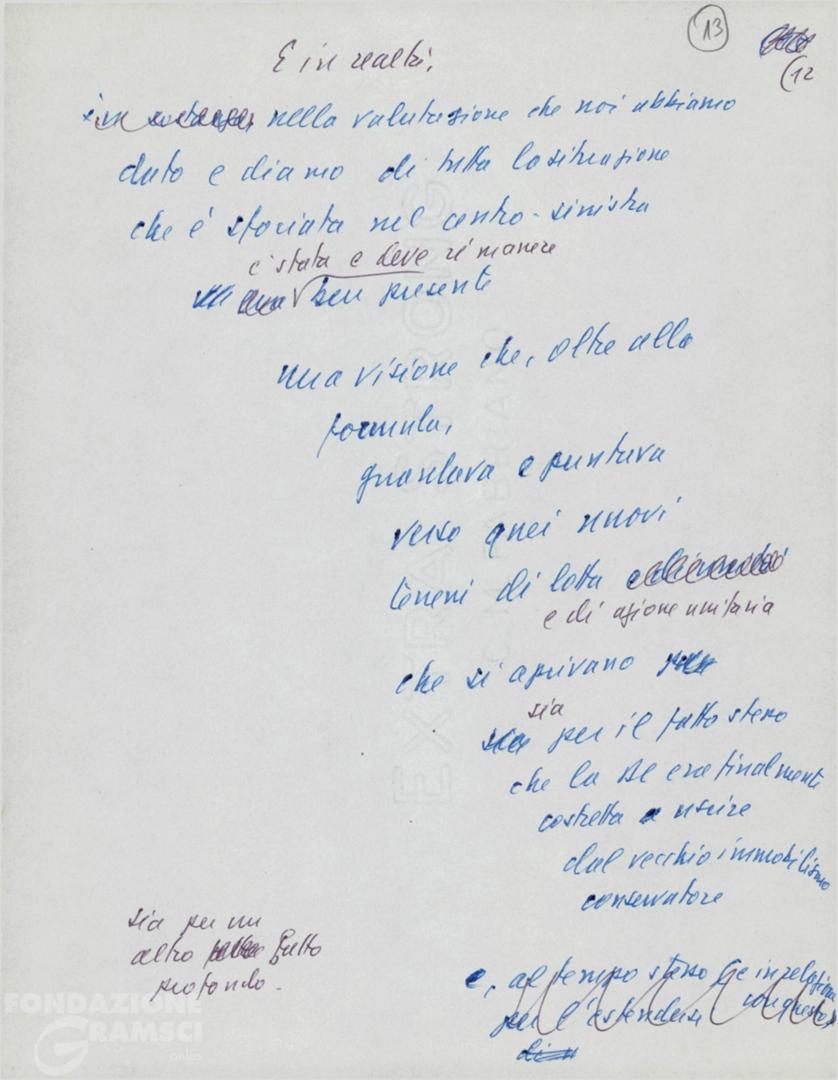 13
(12
E in realtà,
nella valutazione che noi abbiamo
dato e diamo di tutta la situazione
che è sfociata nel centro-sinistra
è stata e deve rimanere
ben presente
una visione che, oltre alla
formula,
guardava e puntava
verso quei nuovi
terreni di lotta
e di azione unitaria
che si aprivano
sia
per il fatto stesso
che la DC era finalmente
costretta a uscire
dal vecchio immobilismo
conservatore
sia per un
altro fatto
profondo.
e, al tempo stesso in relazione
per l'estendersi
FONDAZIONE
GRAMSCI
onlus
EXTRA STRONG
C.M. FABRIANO